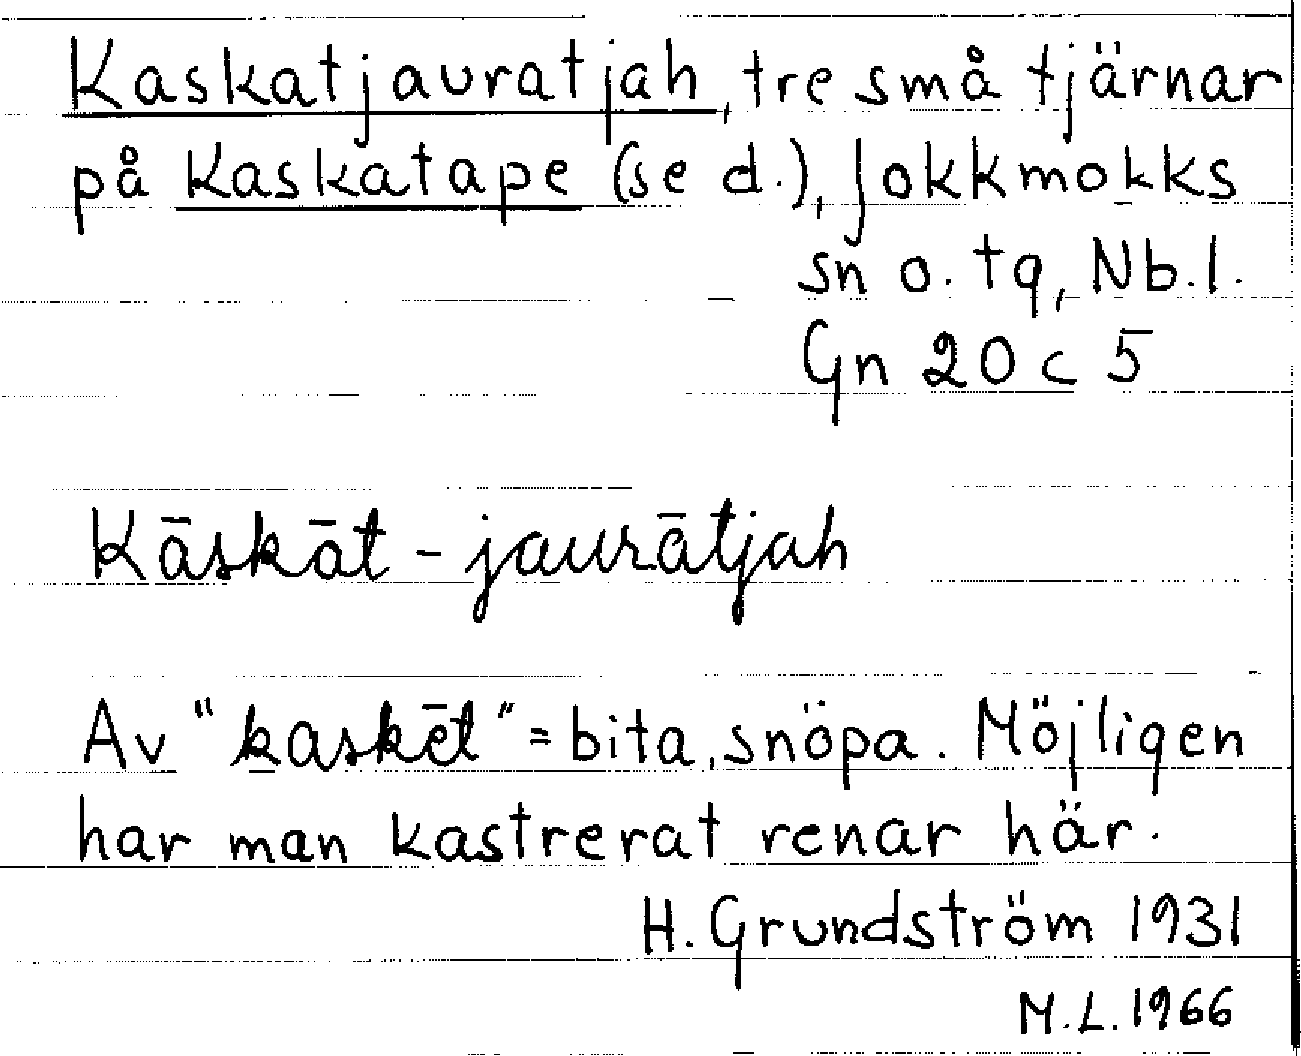 Kaskatjauratjah, tre små tjärnar
på Kaskatape (se d.), Jokkmokks
sn o. tg, Nb.l.
Gn 20 c 5
Kāskāt - jaurātjah
Av "kaskēt" = bita, snöpa. Möjligen
har man kastrerat renar här.
H. Grundström 1931
M.L. 1966